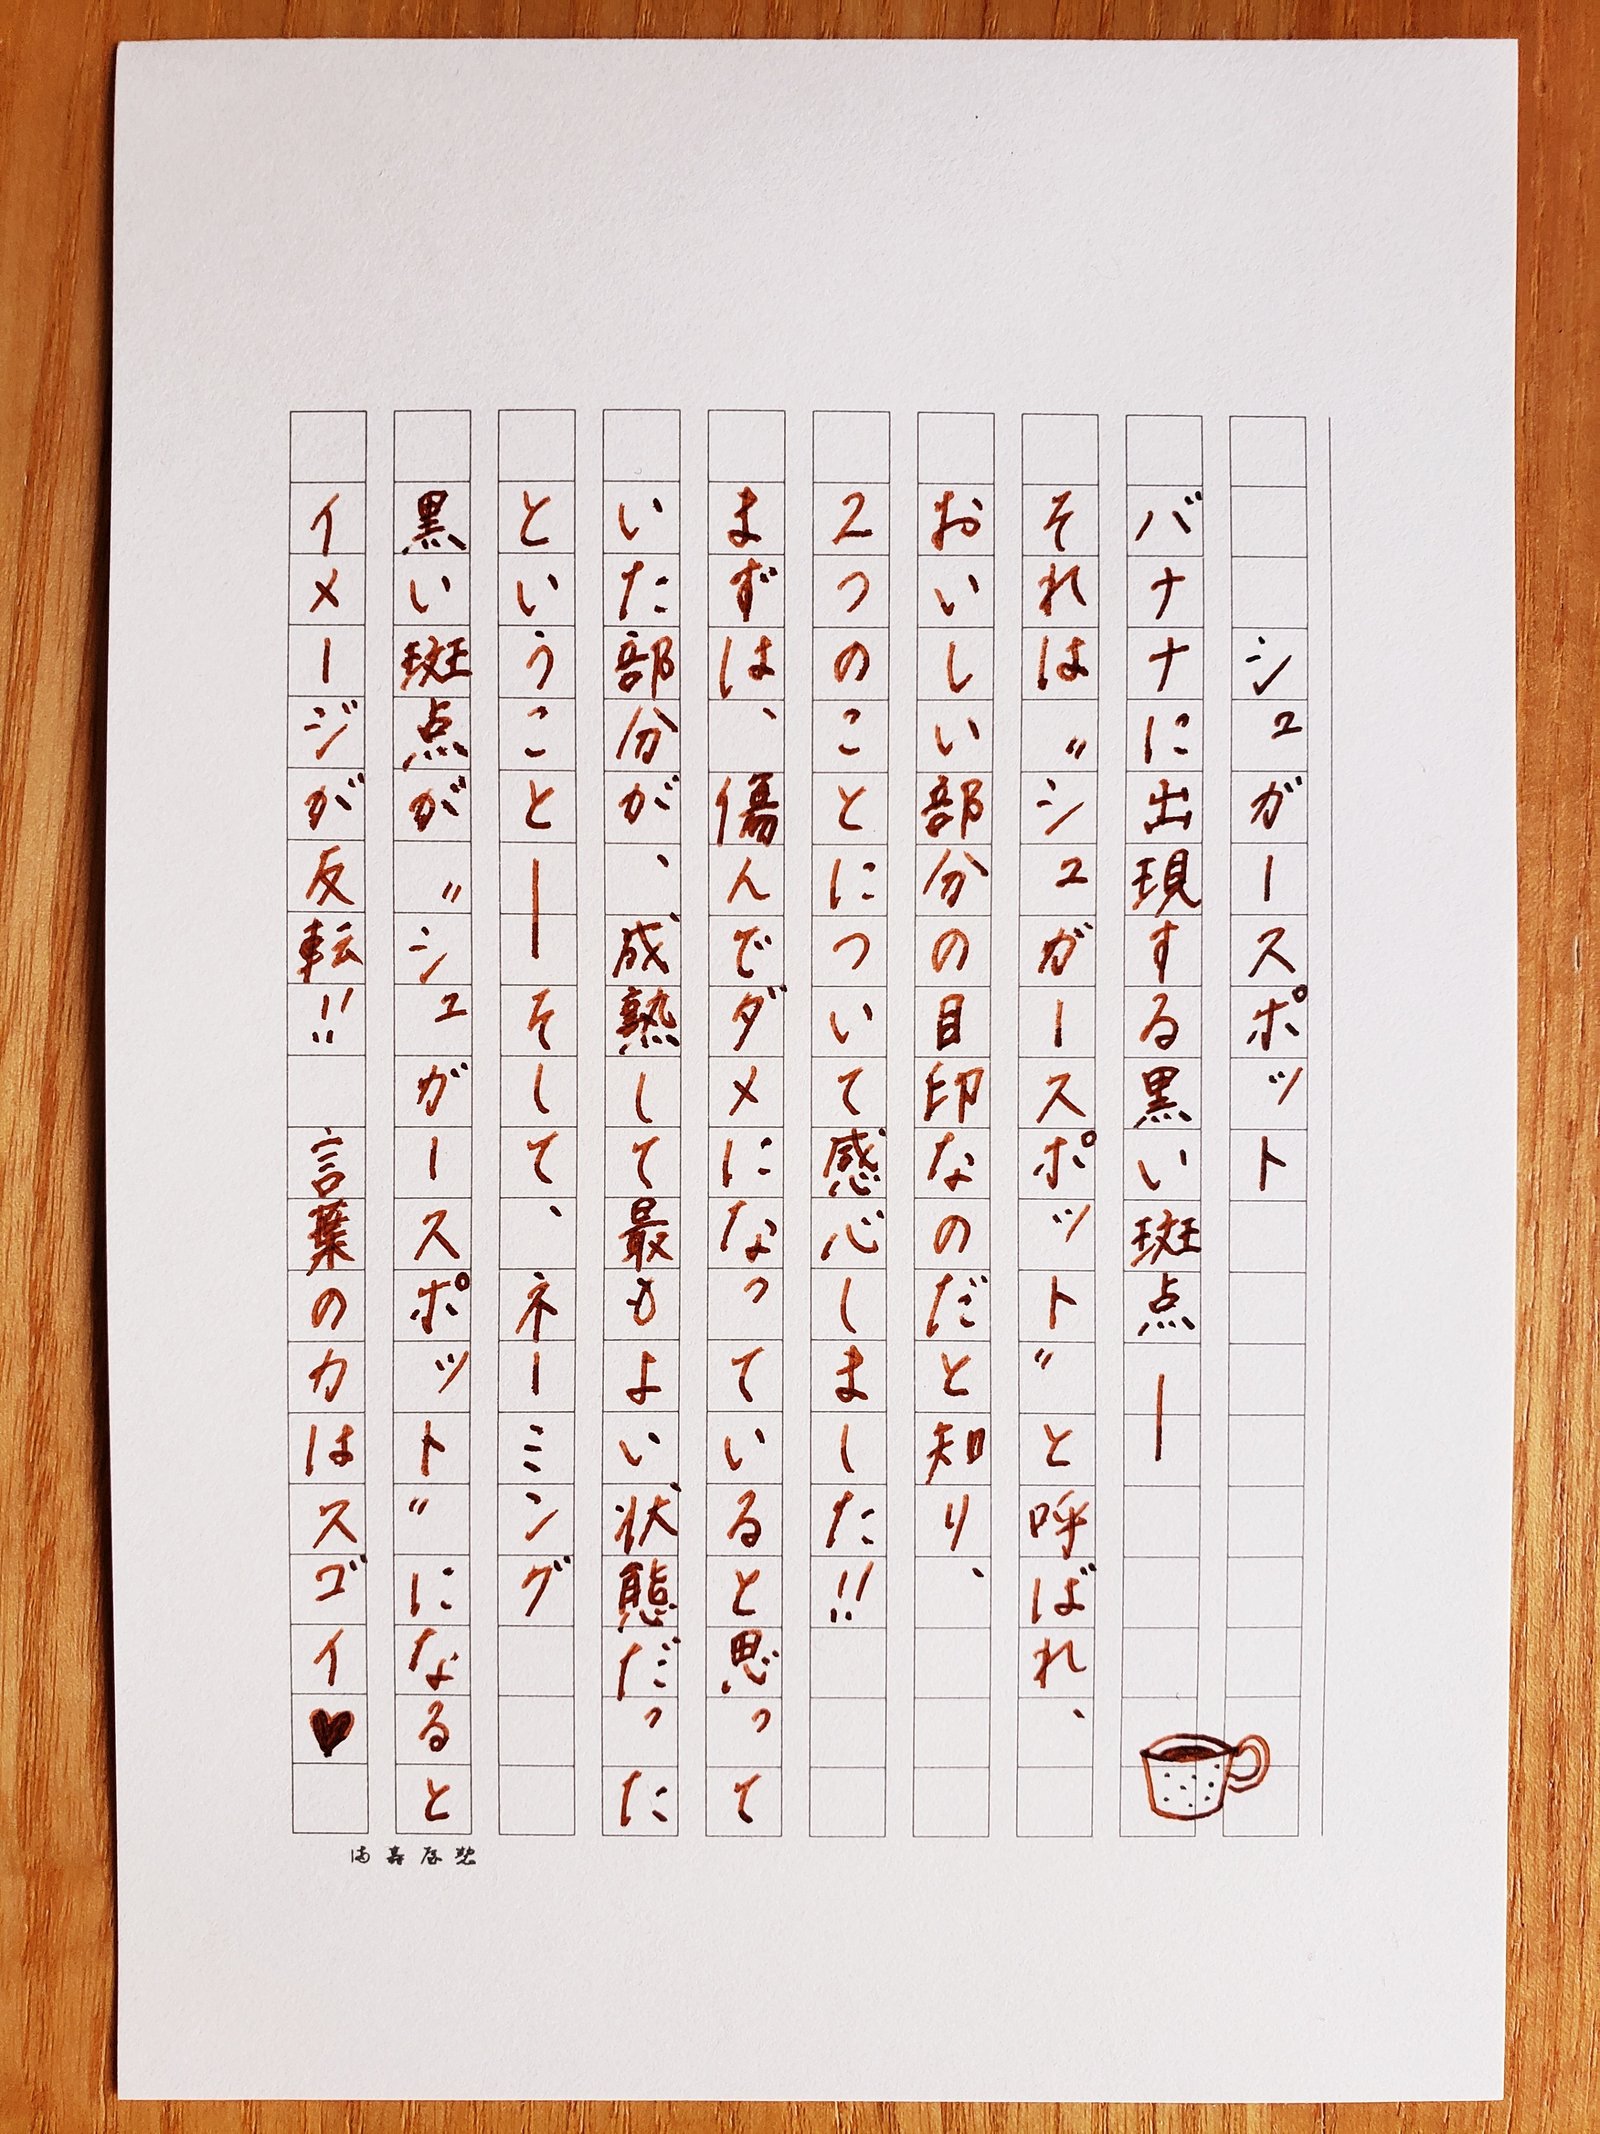 シュガースポット
バナナに出現する黒い斑点――
それは〝シュガースポット〟と呼ばれ、
おいしい部分の目印なのだと知り、
2つのことについて感心しました!!
まずは、傷んでダメになっていると思って
いた部分が、成熟して最もよい状態だった
ということ――そして、ネーミング
黒い斑点が〝シュガースポット〟になると
イメージが反転!!　言葉の力はスゴイ♥